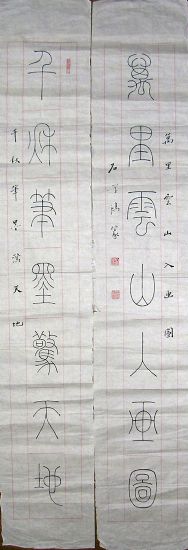 萬里雲山入画圖
萬里雲山入画圖
千秋筆墨驚天地
千秋筆墨驚天地